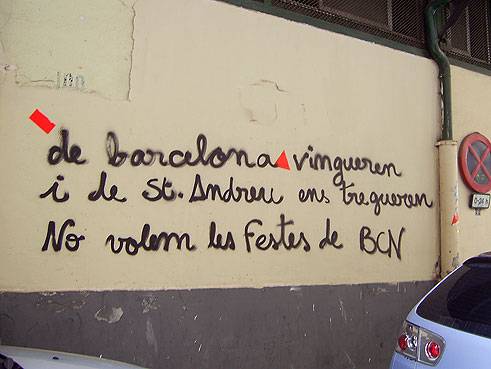 de barcelona vingueren
i de St. Andreu ens tregueren
No volem les Festes de BCN